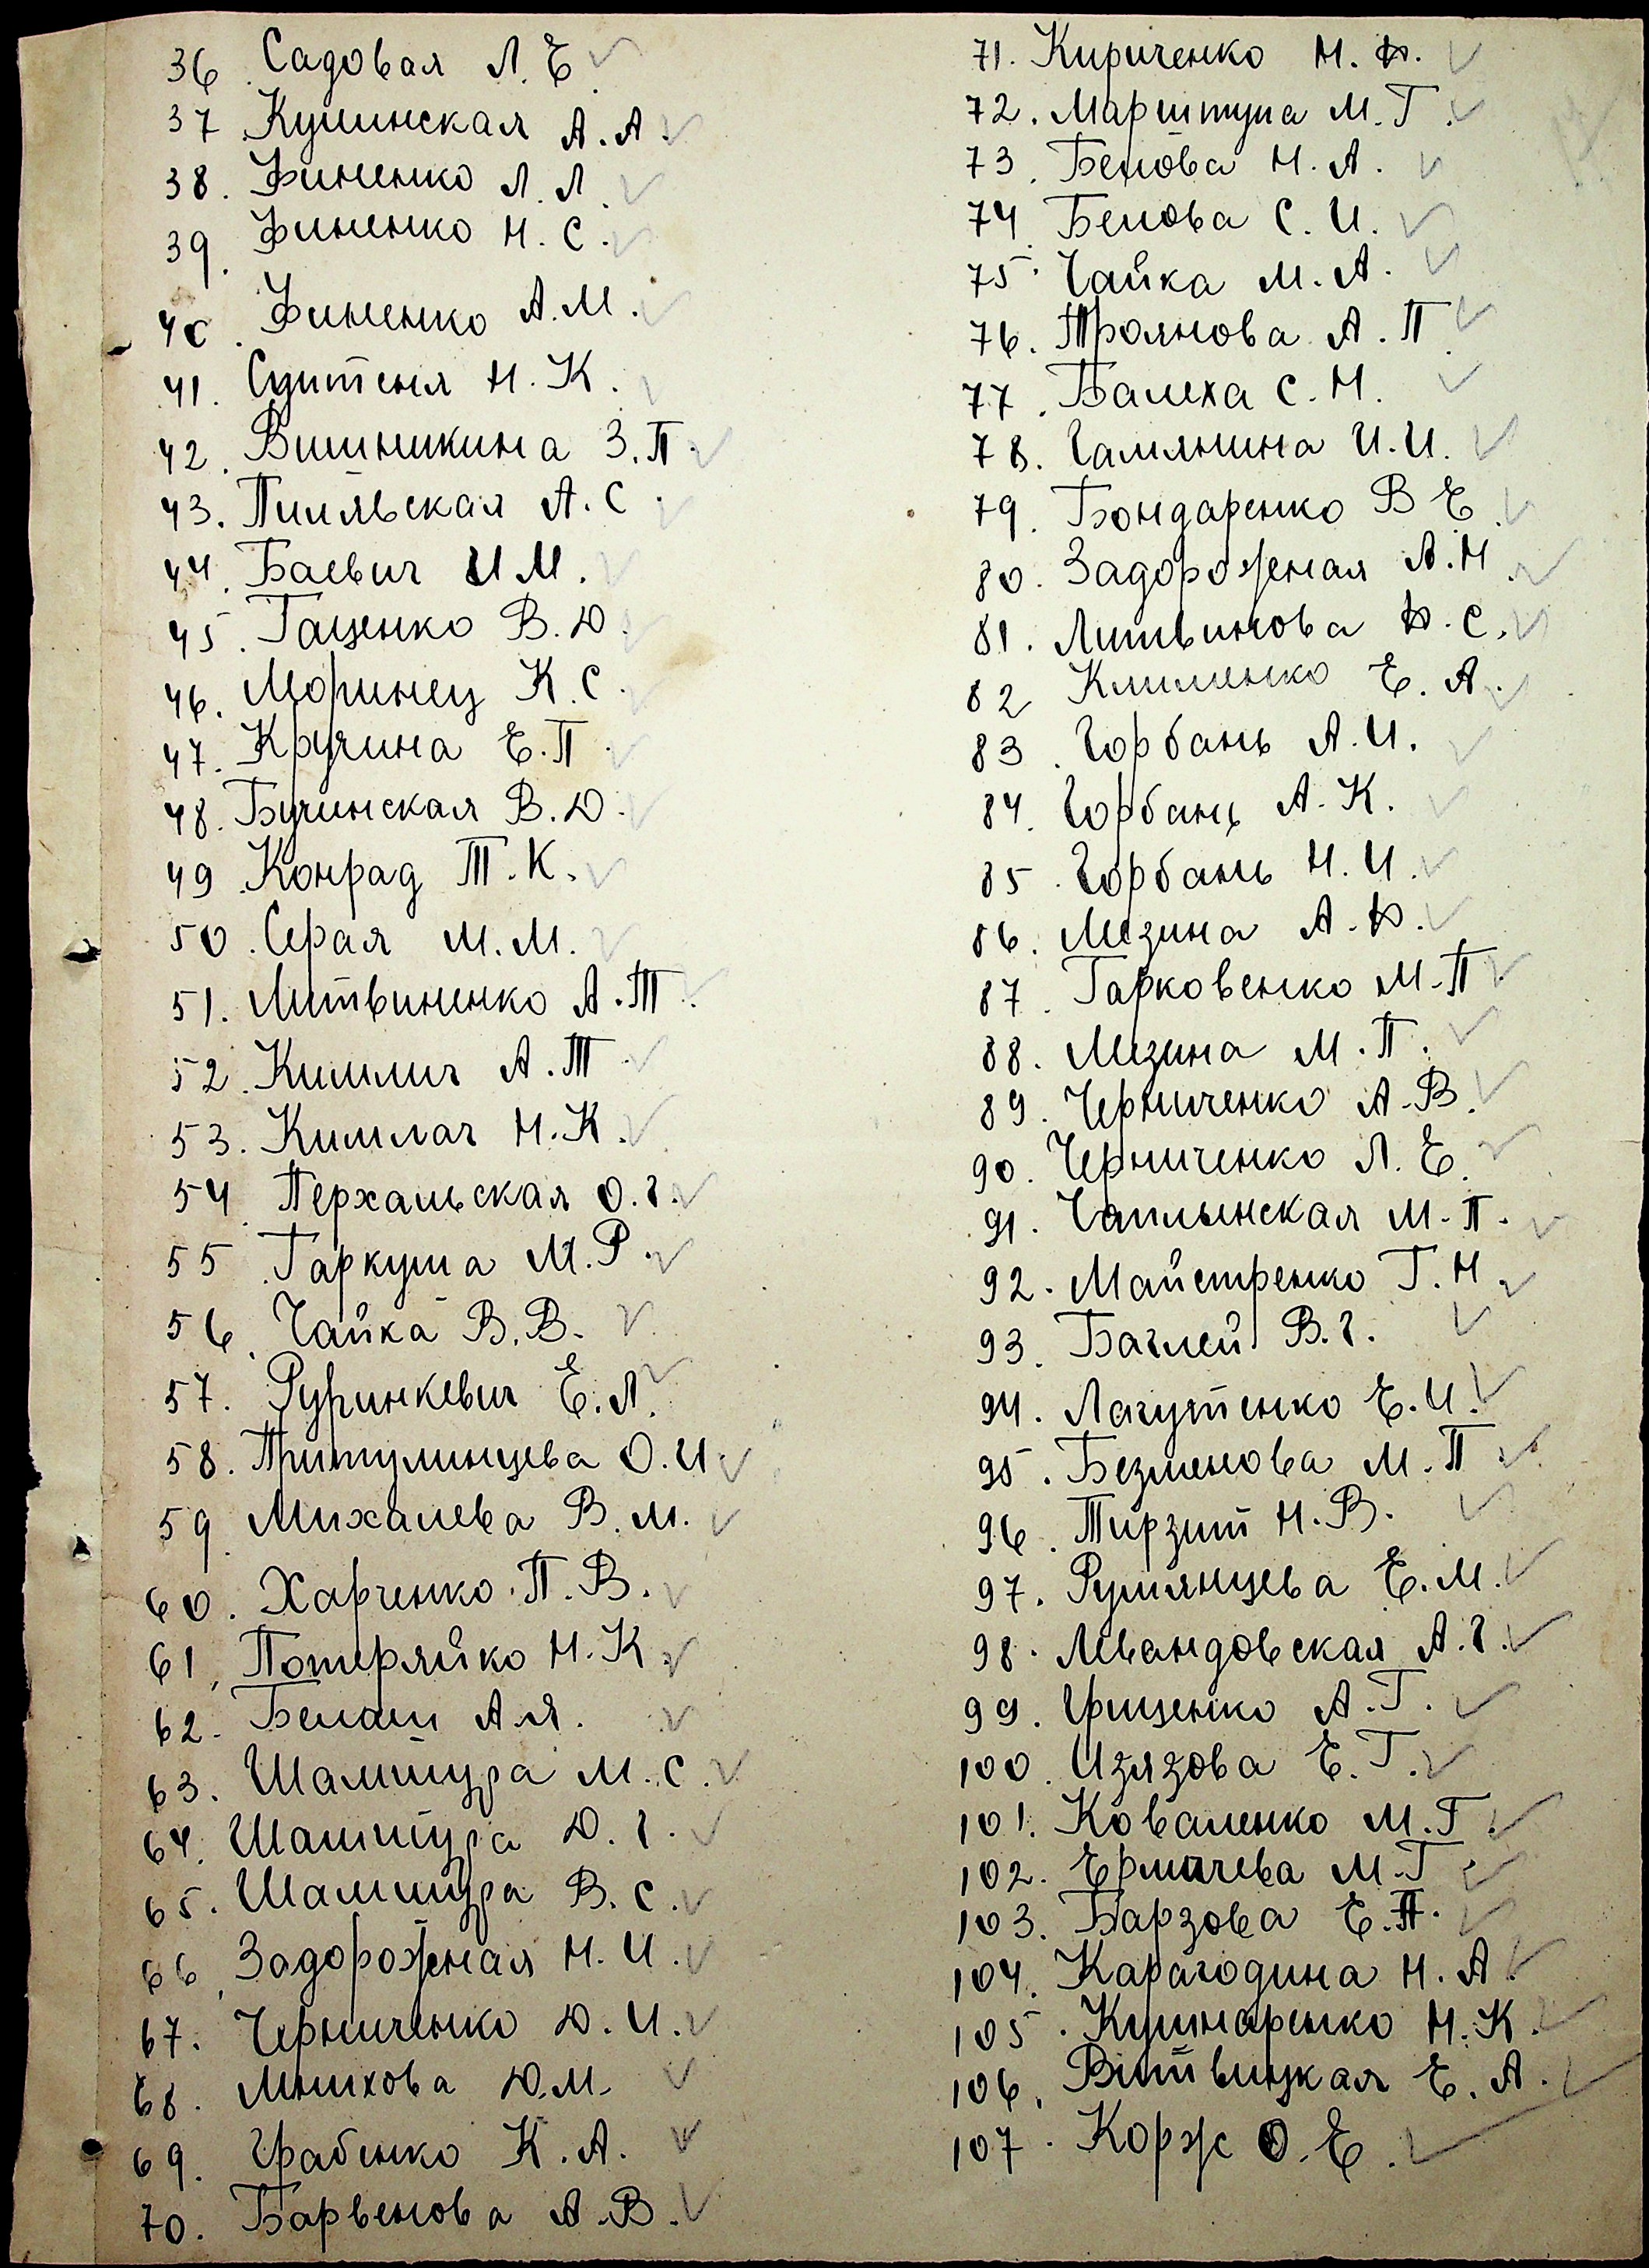 36. Садовая Л. Е
37. Кушнская А. А.
38. Финенко Л. Л.
39. Финенко Н. С.
40. Финенко А. М.
41. Сушеня Н. К.
42. Вишникина З. П.
43. Пилявская А. С.
44. Баевич И М.
45. Гащенко В. Д.
46. Моринец К. С.
47. Кручина Е. П.
48. Бучинская В. Д.
49. Конрад Т. К.
50. Серая М. М.
51. Литвиненко А. Т.
52. Кимлич А. Т.
53. Кимлач Н. К.
54. Перхальская О. Г.
55. Гаркуша М. Р.
56. Чайка В. В.
57. Руринкевич Е. Л.
58. Притулинцева О. И.
59. Михалева В. М.
60. Харченко П. В.
61. Потеряйко Н. К.
62. Белаш А. Я.
63. Шамшура М. С.
64. Шамшура Д. Г.
65. Шамшура В. С.
66. Задорожная Н. И.
67. Черниченко Д. И.
68. Мнихова Д. М.
69. Грабенко К. А.
70. Барвенова А. В.
71. Кириченко Н. Ф.
72. Марштупа М. Г.
73. Белова Н. А.
74. Белова С. И.
75. Чайка М. А.
76. Троянова А. П.
77. Балеха С. Н.
78. Галянина И. И.
79. Бондаренко В Е.
80. Задорожная А. Н.
81. Литвинова Ф. С.
82 Клименко Е. А.
83. Горбань А. И.
84. Горбань А. К.
85. Горбань Н. И.
86. Мезина А. Ф.
87. Гарковенко М. П.
88. Мезина М. П.
89. Черниченко А. В.
90. Черниченко Л. Е.
91. Чаплынская М. П.
92. Майстренко Г. Н.
93. Баглей В. Г.
94. Лагутенко Е. И.
95. Безменова М. П.
96. Тирзит Н. В.
97. Румянцева Е. М.
98. Левандовская А. Г.
99. Грищенко А. Г.
100. Изязова Е. Г.
101. Коваленко М. Г.
102. Ермичева М. Г
103. Барзова Е. П.
104. Карагодина Н. А.
105. Кушнаренко Н. К.
106. Витвицкая Е. А.
107. Корж О. Е.